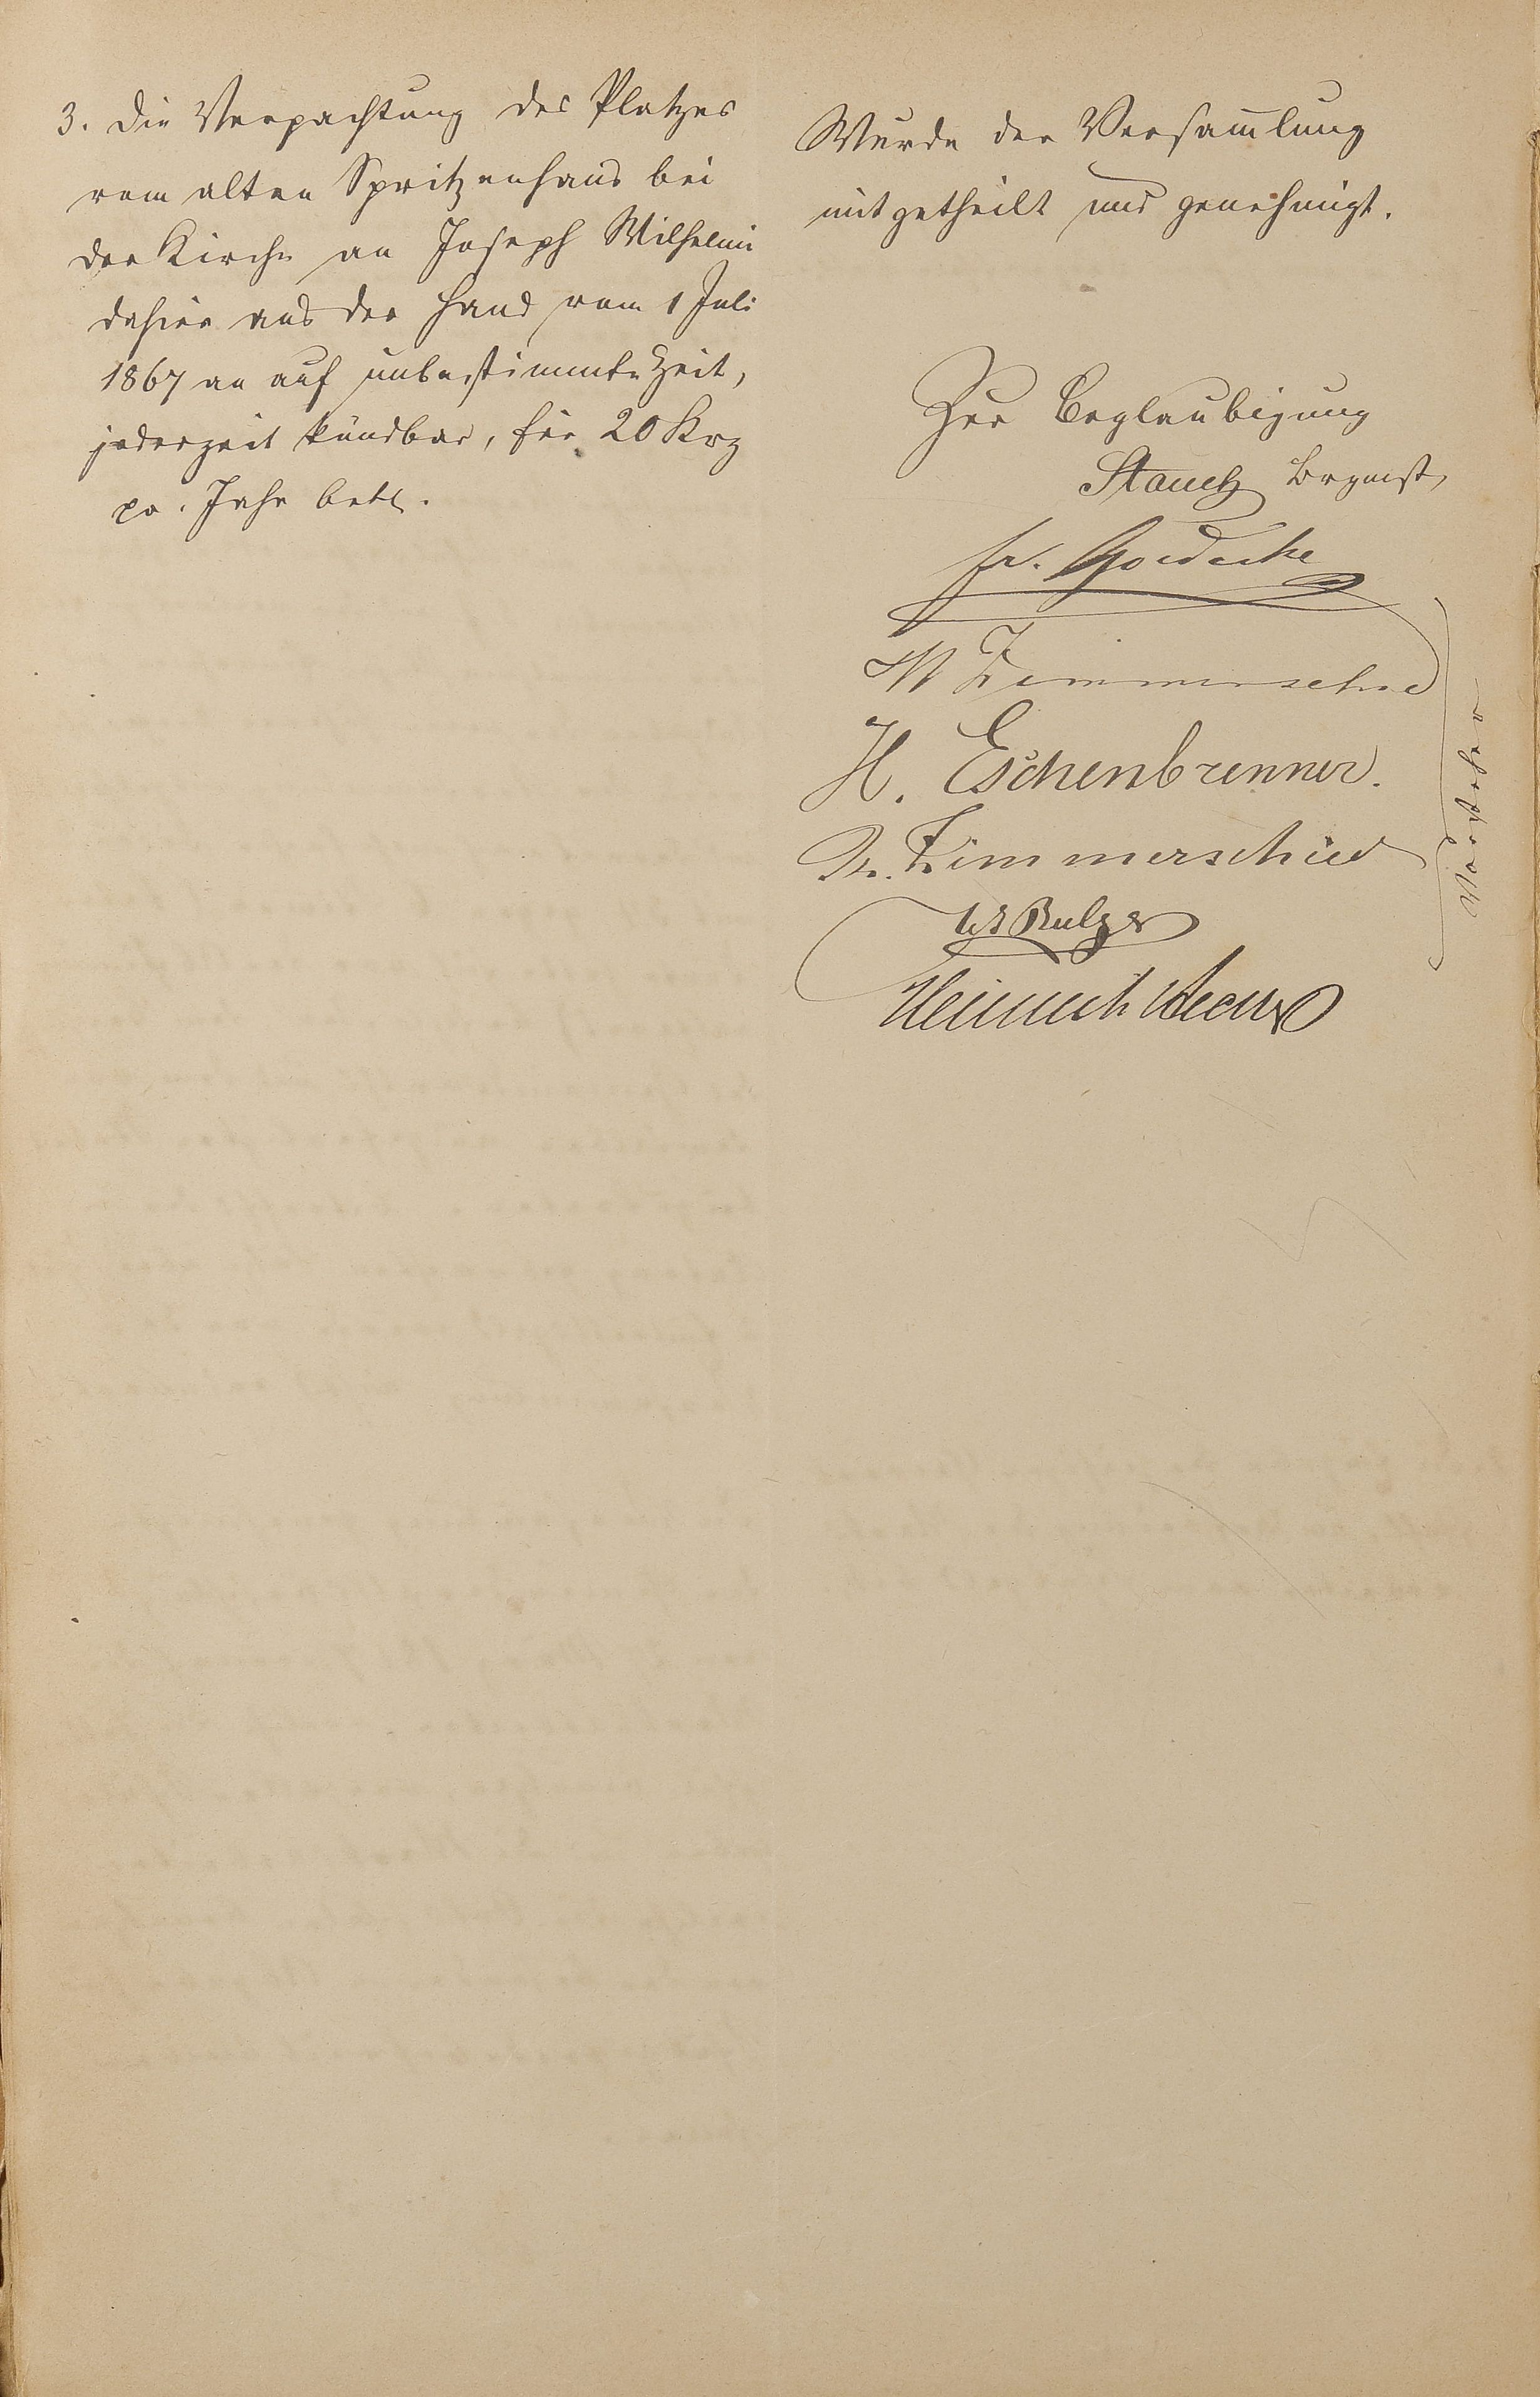 3. Die Verpachtung des Platzes
vom alten Spritzenhaus bei
der Kirche an Joseph Wilhelmi
dahier aus der Hand vom 1 Juli
1867 an auf unbestimmte Zeit,
jederzeit kündbar, für 20 Krz
pr. Jahr betr.
Wurde der Versam̄lung
mitgetheilt und genehmigt.
Zur Beglaubigung
Stauch Brgmst,
Fr. Goedecke
W Zimmerschied
H. Eschenbrenner.
Zimmerschied
Heinrich
Vorsteher